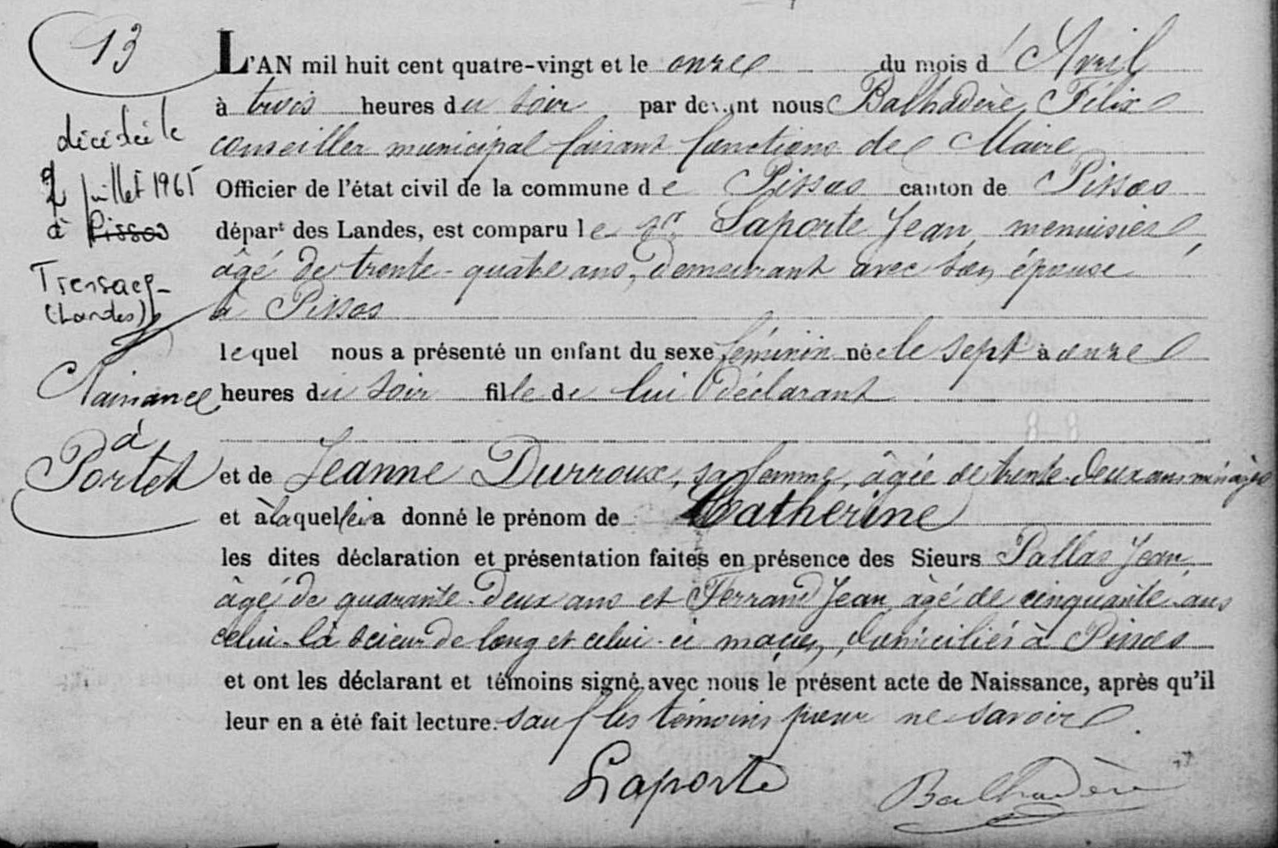 13
décédée le
2 juillet 1965
à Pissos
Trensacq
(Landes)
Naissance
à
Portet
L'AN mil huit cent quatre-vingt et le onze du mois d'Avril
à trois heures du soir par devant nous Balhadère Félix
conseiller municipal faisant fonctions de Maire
Officier de l'état civil de la commune de Pissos canton de Pissos
départ des Landes, est comparu le Sr Laporte Jean, menuisier,
âgé de trente-quatre ans, demeurant avec son épouse
à Pissos
lequel nous a présenté un enfant du sexe féminin née le sept à onze
heures du soir fille de lui déclarant
et de Jeanne Durroux, sa femme, âgée de trente-deux ans ménagère
et à laquelle il a donné le prénom de Catherine
les dites déclaration et présentation faites en présence des Sieurs Pallas Jean,
âgé de quarante-deux ans et Ferrand Jean âgé de cinquante ans
celui-là scieur de long et celui-ci maçon, domiciliés à Pissos
et ont les déclarant et témoins signé avec nous le présent acte de Naissance, après qu'il
leur en a été fait lecture. sauf les témoins pour ne savoir.
Laporte Balhadère